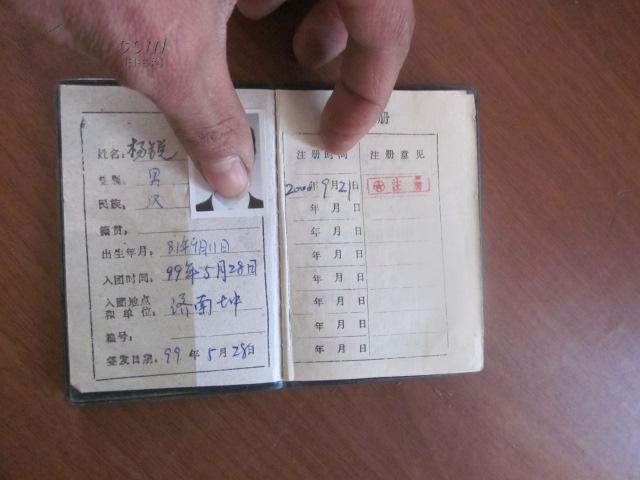 姓名：杨锐
性别：男
民族：汉
籍贯：
出生年月：81年9月11日
入团时间：99年5月28日
入团地点
和单位：济南七中
编号：
签发日期：99年5月28日
册
注册时间 注册意见
2000年9月21日 注册
年 月 日
年 月 日
年 月 日
年 月 日
年 月 日
年 月 日
年 月 日